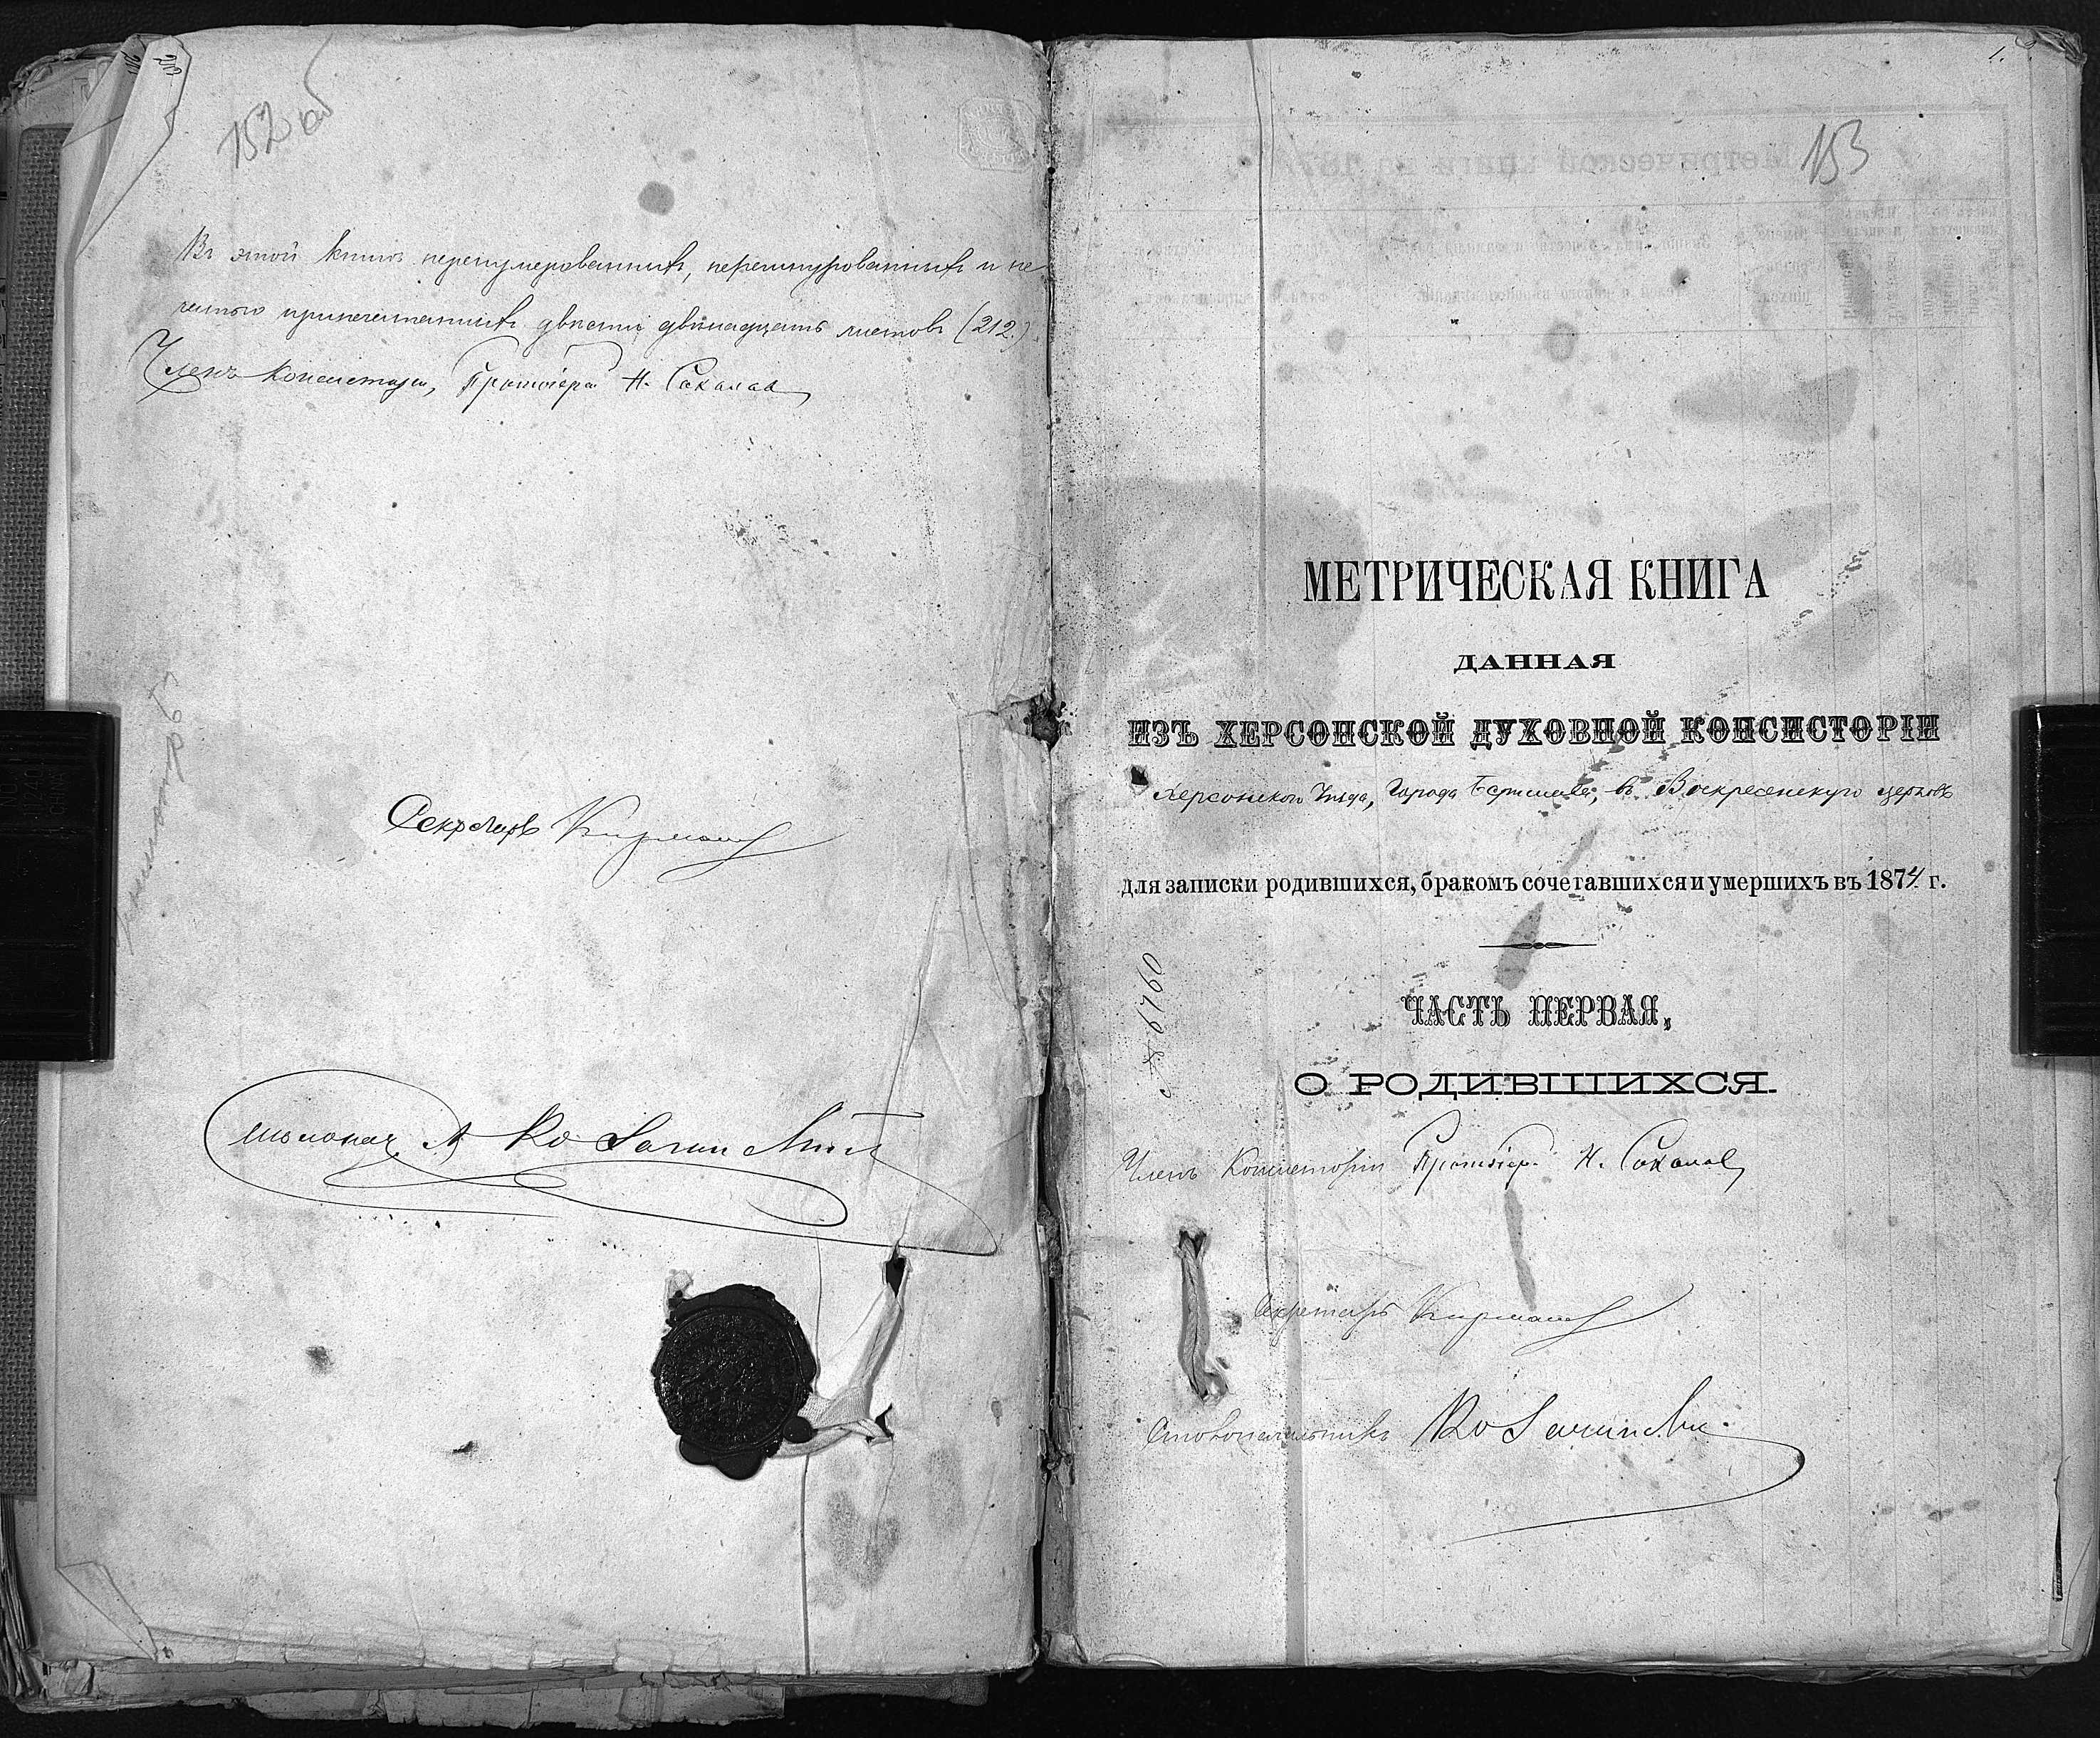 152 об
Въ этой книгѣ перенумерованныхъ, перешнурованныхъ и пе-
чатью припечатанныхъ двѣсти двѣнадцать листовъ (212.)
Членъ Консисторіи, Протоіерей Н. Соколовъ
Секретарь
1.
153
МЕТРИЧЕСКАЯ КНИГА
ДАННАЯ
ИЗЪ ХЕРСОНСКОЙ ДУХОВНОЙ КОНСИСТОРІИ
Херсонскаго Уѣзда, Города Берислава, въ Воскресенскую церковь
для записки родившихся, бракомъ сочетавшихся и умершихъ въ 1874 г.
ЧАСТЬ ПЕРВАЯ,
О РОДИВШИХСЯ.
Членъ Консисторіи Протоіерей Н. Соколовъ
Секретарь
Столоначальникъ